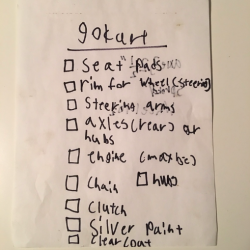 gokart
seat pads
rim for wheel (steerin)
Steering arms
axles (rear) or
hubs
engine (
chain hubs
clutch
Silver Paint
clear coat